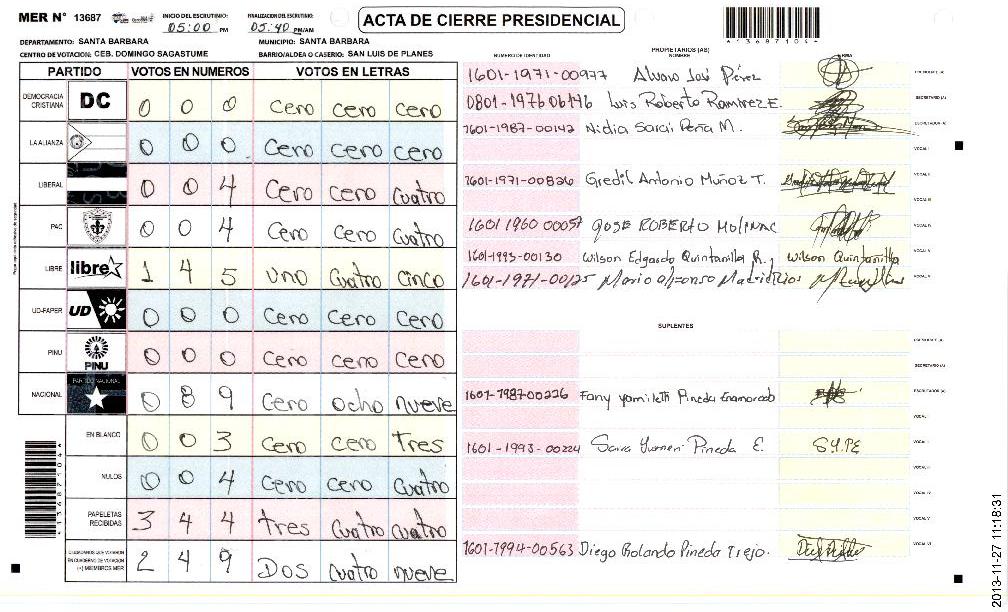 MER N° 13687
INICIO DEL ESCRUTINIO: 05:00 PM
FINALIZACION DEL ESCRUTINIO: 05:40 PM/AM
ACTA DE CIERRE PRESIDENCIAL
*13687104*
DEPARTAMENTO: SANTA BARBARA
MUNICIPIO: SANTA BARBARA
CENTRO DE VOTACION: CEB. DOMINGO SAGASTUME
BARRIO/ALDEA O CASERIO: SAN LUIS DE PLANES
PARTIDO VOTOS EN NUMEROS VOTOS EN LETRAS
DEMOCRACIA CRISTIANA DC 0 0 0 cero cero cero
LA ALIANZA 0 0 0 cero cero cero
LIBERAL 0 0 4 cero cero cuatro
PAC 0 0 4 cero cero cuatro
LIBRE libre 1 4 5 uno cuatro cinco
UD-FAPER UD 0 0 0 cero cero cero
PINU PINU 0 0 0 cero cero cero
NACIONAL PARTIDO NACIONAL 0 8 9 cero ocho nueve
EN BLANCO 0 0 3 cero cero Tres
NULOS 0 0 4 cero cero cuatro
PAPELETAS RECIBIDAS 3 4 4 tres cuatro cuatro
CIUDADANOS QUE VOTARON EN CUADERNO DE VOTACION (+) MIEMBROS MER 2 4 9 Dos cuatro nueve
*13687104*
PROPIETARIOS (AS)
NUMERO DE IDENTIDAD NOMBRE FIRMA
1601-1971-00977 Alvaro José Pérez PRESIDENTE (A)
Luis Roberto Ramirez E. SECRETARIO (A)
1601-1987-00142 Nidia Sarai Peña M. ESCRUTADOR (A)
VOCAL I
1601-1971-00826 Gredil Antonio Muñoz T. VOCAL II
VOCAL III
1601 1960 00057 JOSE ROBERTO VOCAL IV
1601-1993-00130 Wilson Edgardo Quintanilla R. Wilson Quintanilla VOCAL V
1601-1971-00125 Mario Alfonso Madrid Rios
SUPLENTES
PRESIDENTE (A)
SECRETARIO (A)
1601-1987-00226 Fany Yamileth Pineda Enamorado ESCRUTADOR (A)
VOCAL I
1601-1993-00224 Sara Yumeri Pineda E. S.Y.P.E VOCAL II
VOCAL III
VOCAL IV
VOCAL V
1601-1994-00563 Diego Rolando Pineda Trejo. VOCAL VI
2013-11-27 11:18:31